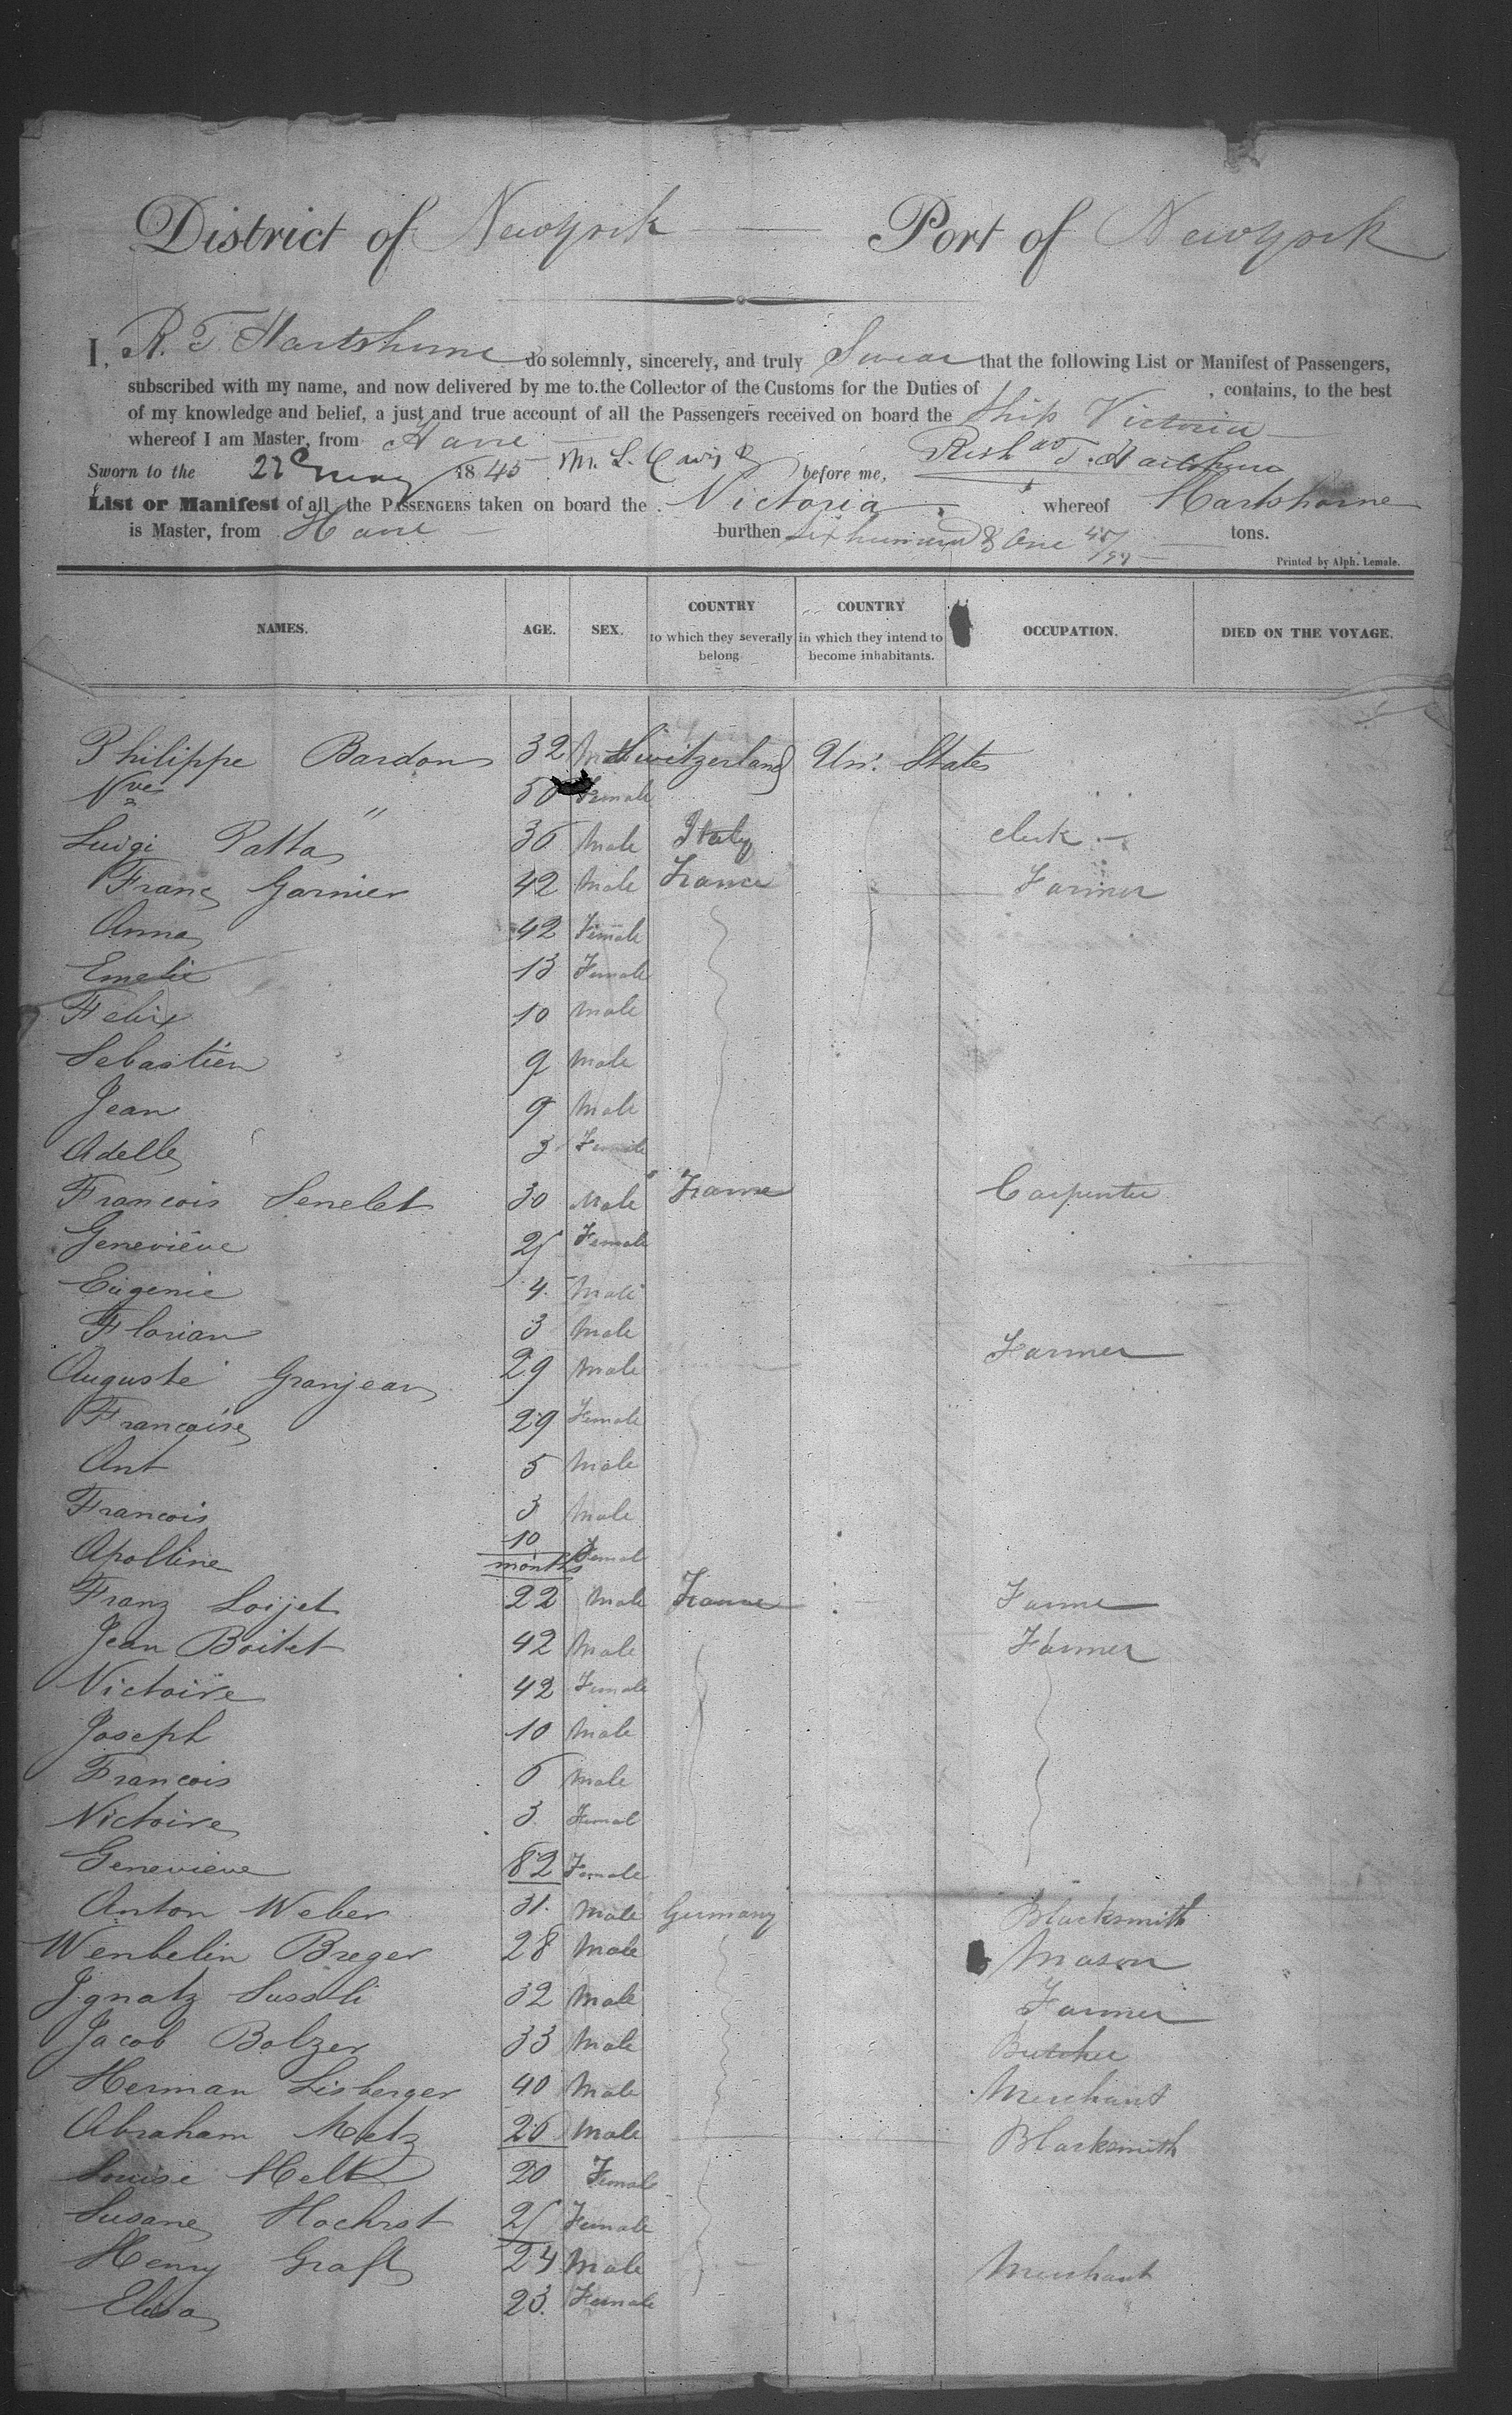 District of Newyork Port of Newyork
I, R. T. Hartshorne do solemnly, sincerely, and truly Swear that the following List or Manifest of Passengers,
subscribed with my name, and now delivered by me to the Collector of the Customs for the Duties of , contains, to the best
of my knowledge and belief, a just and true account of all the Passengers received on board the Ship Victoria
whereof I am Master, from Havre
Sworn to the May 1845 before me, T. Hartshorne
List or Manifest of all the PASSENGERS taken on board the Victoria whereof Hartshorne
is Master, from Havre burthen Six hundred & One tons.
Printed by Alph. Lemale.
NAMES. AGE. SEX. COUNTRY to which they severally belong COUNTRY in which they intend to become inhabitants. OCCUPATION. DIED ON THE VOYAGE.
Philippe Bardon 32 Male Switzerland Un. States
Nve " 30 Female
Luigi Patta 36 Male Italy clerk
Franç Garnier 42 Male France Farmer
Anna 42 Female
Emelie 13 Female
Felix 10 Male
Sebastien 9 Male
Jean 9 Male
Adelle 3 Female
Francois Senelet 30 Male France Carpenter
Geneviève 25 Female
Eugenie 4 Male
Florian 3 Male
Auguste Granjean 29 Male Farmer
Francoise 29 Female
Ant 5 Male
Francois 3 Male
Apolline 10 months Female
Franz Loijet 22 Male France Farmer
Jean Boitet 42 Male Farmer
Victoire 42 Female
Joseph 10 Male
Francois 6 Male
Victoire 3 Female
Genevieve 82 Female
Anton Weber 31 Male Germany Blacksmith
Wenbelin Breger 28 Male Mason
Ignatz Sussli 32 Male Farmer
Jacob Bolzer 33 Male Butcher
Herman Lisberger 40 Male Merchant
Abraham Metz 26 Male Blacksmith
Louise Helt 20 Female
Susane Hochrot 25 Female
Henry Graft 24 Male Merchant
Elisa 23 Female